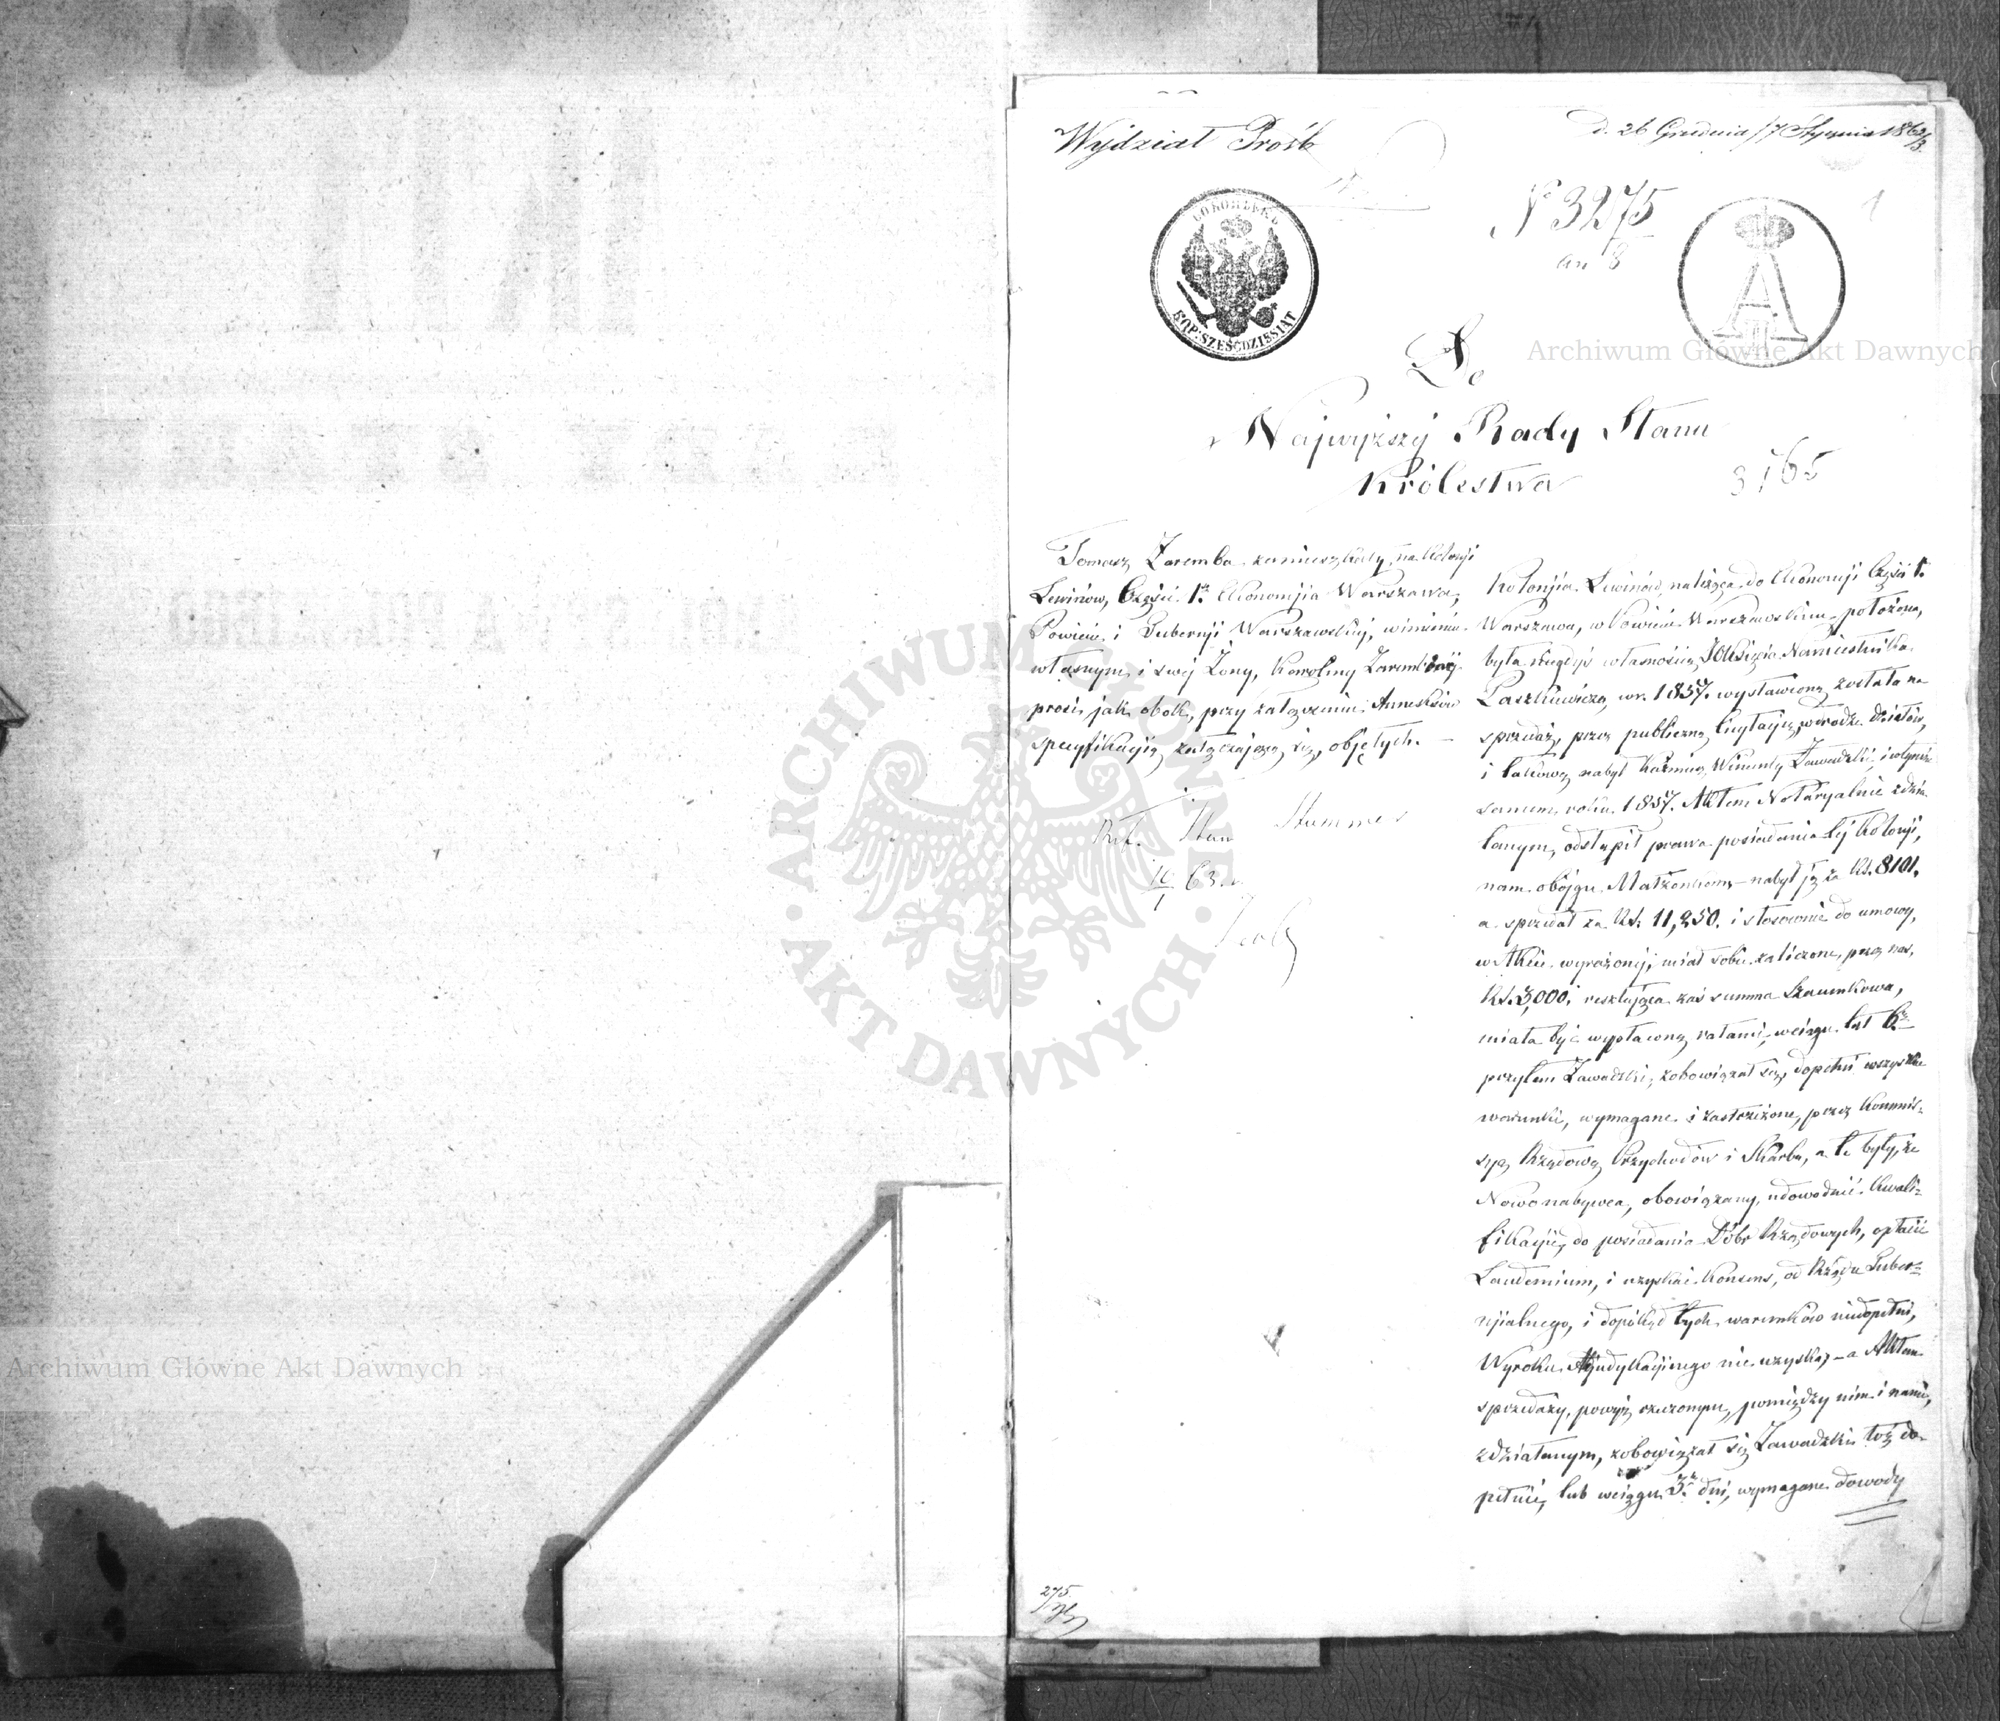 Wydział Próśb
d. 26 Grudnia / 7 Stycznia 1862/3.
1
N 3275
KOP: SZEŚĆDZIESIĄT
A
II
Do
Najwyższej Rady Stanu
Królestwa
3165
Tomasz Zaremba zamieszkały na Kolonji
Lewinów, Część 1a Ekonomjia Warszawa,
Powiecie i Gubernji Warszawskiej, w imieniu
własnym i swej Żony, Karoliny Zarembiny
prosi jak obok, przy załączeniu Anneksów
specyfikacyią załączającą się, objętych. —
Stummer
10/1 63.
Kolonjia Lewinów, należąca do Ekonomji Część 1.
Warszawa, w Powiecie Warszawskim położona,
była niegdyś własnością JO Księcia Namiestnika
Paszkiewicza, w r. 1857. wystawioną została na
sprzedaż, przez publiczną licytacyią, w drodze działów,
i takową nabył Kaźmierz Wincenty Zawadzki, i w tymże
samym roku 1857. Aktem Notaryalnie zdzia-
łanym, odstąpił prawa posiadania tej Kolonji,
nam obojgu Małżonkom – nabył ją za Rs. 8101.
a sprzedał za Rs. 11,250. i stosownie do umowy,
w Akcie wyrażonej, miał sobie zaliczone, przez nas,
Rs. 3,000, resztująca zaś summa Szacunkowa,
miała być wypłaconą ratami, w ciągu lat 6ciu
przytem Zawadzki, zobowiązał się, dopełnić wszystkie
warunki, wymagane i zastrzeżone, przez Kommis-
syą Rządową Przychodów i Skarbu, a te były, że
Nowonabywca, obowiązany, udowodnić Kwali-
fikacyię, do posiadania Dóbr Rządowych, opłacić
Laudemium, i uzyskać Konsens, od Rządu Guber-
njialnego, i dopókąd tych warunków niedopełni,
Wyroku Adjudykacyinego nie uzyska, – a Aktem
sprzedaży, powyż rzeczonym, pomiędzy nim i nami,
zdziałanym, zobowiązał się Zawadzki toż do-
pełnić, lub w ciągu 3ch dni, wymagane dowody
275
Archiwum Główne Akt Dawnych
Archiwum Główne Akt Dawnych
ARCHIWUM GŁÓWNE · AKT DAWNYCH ·